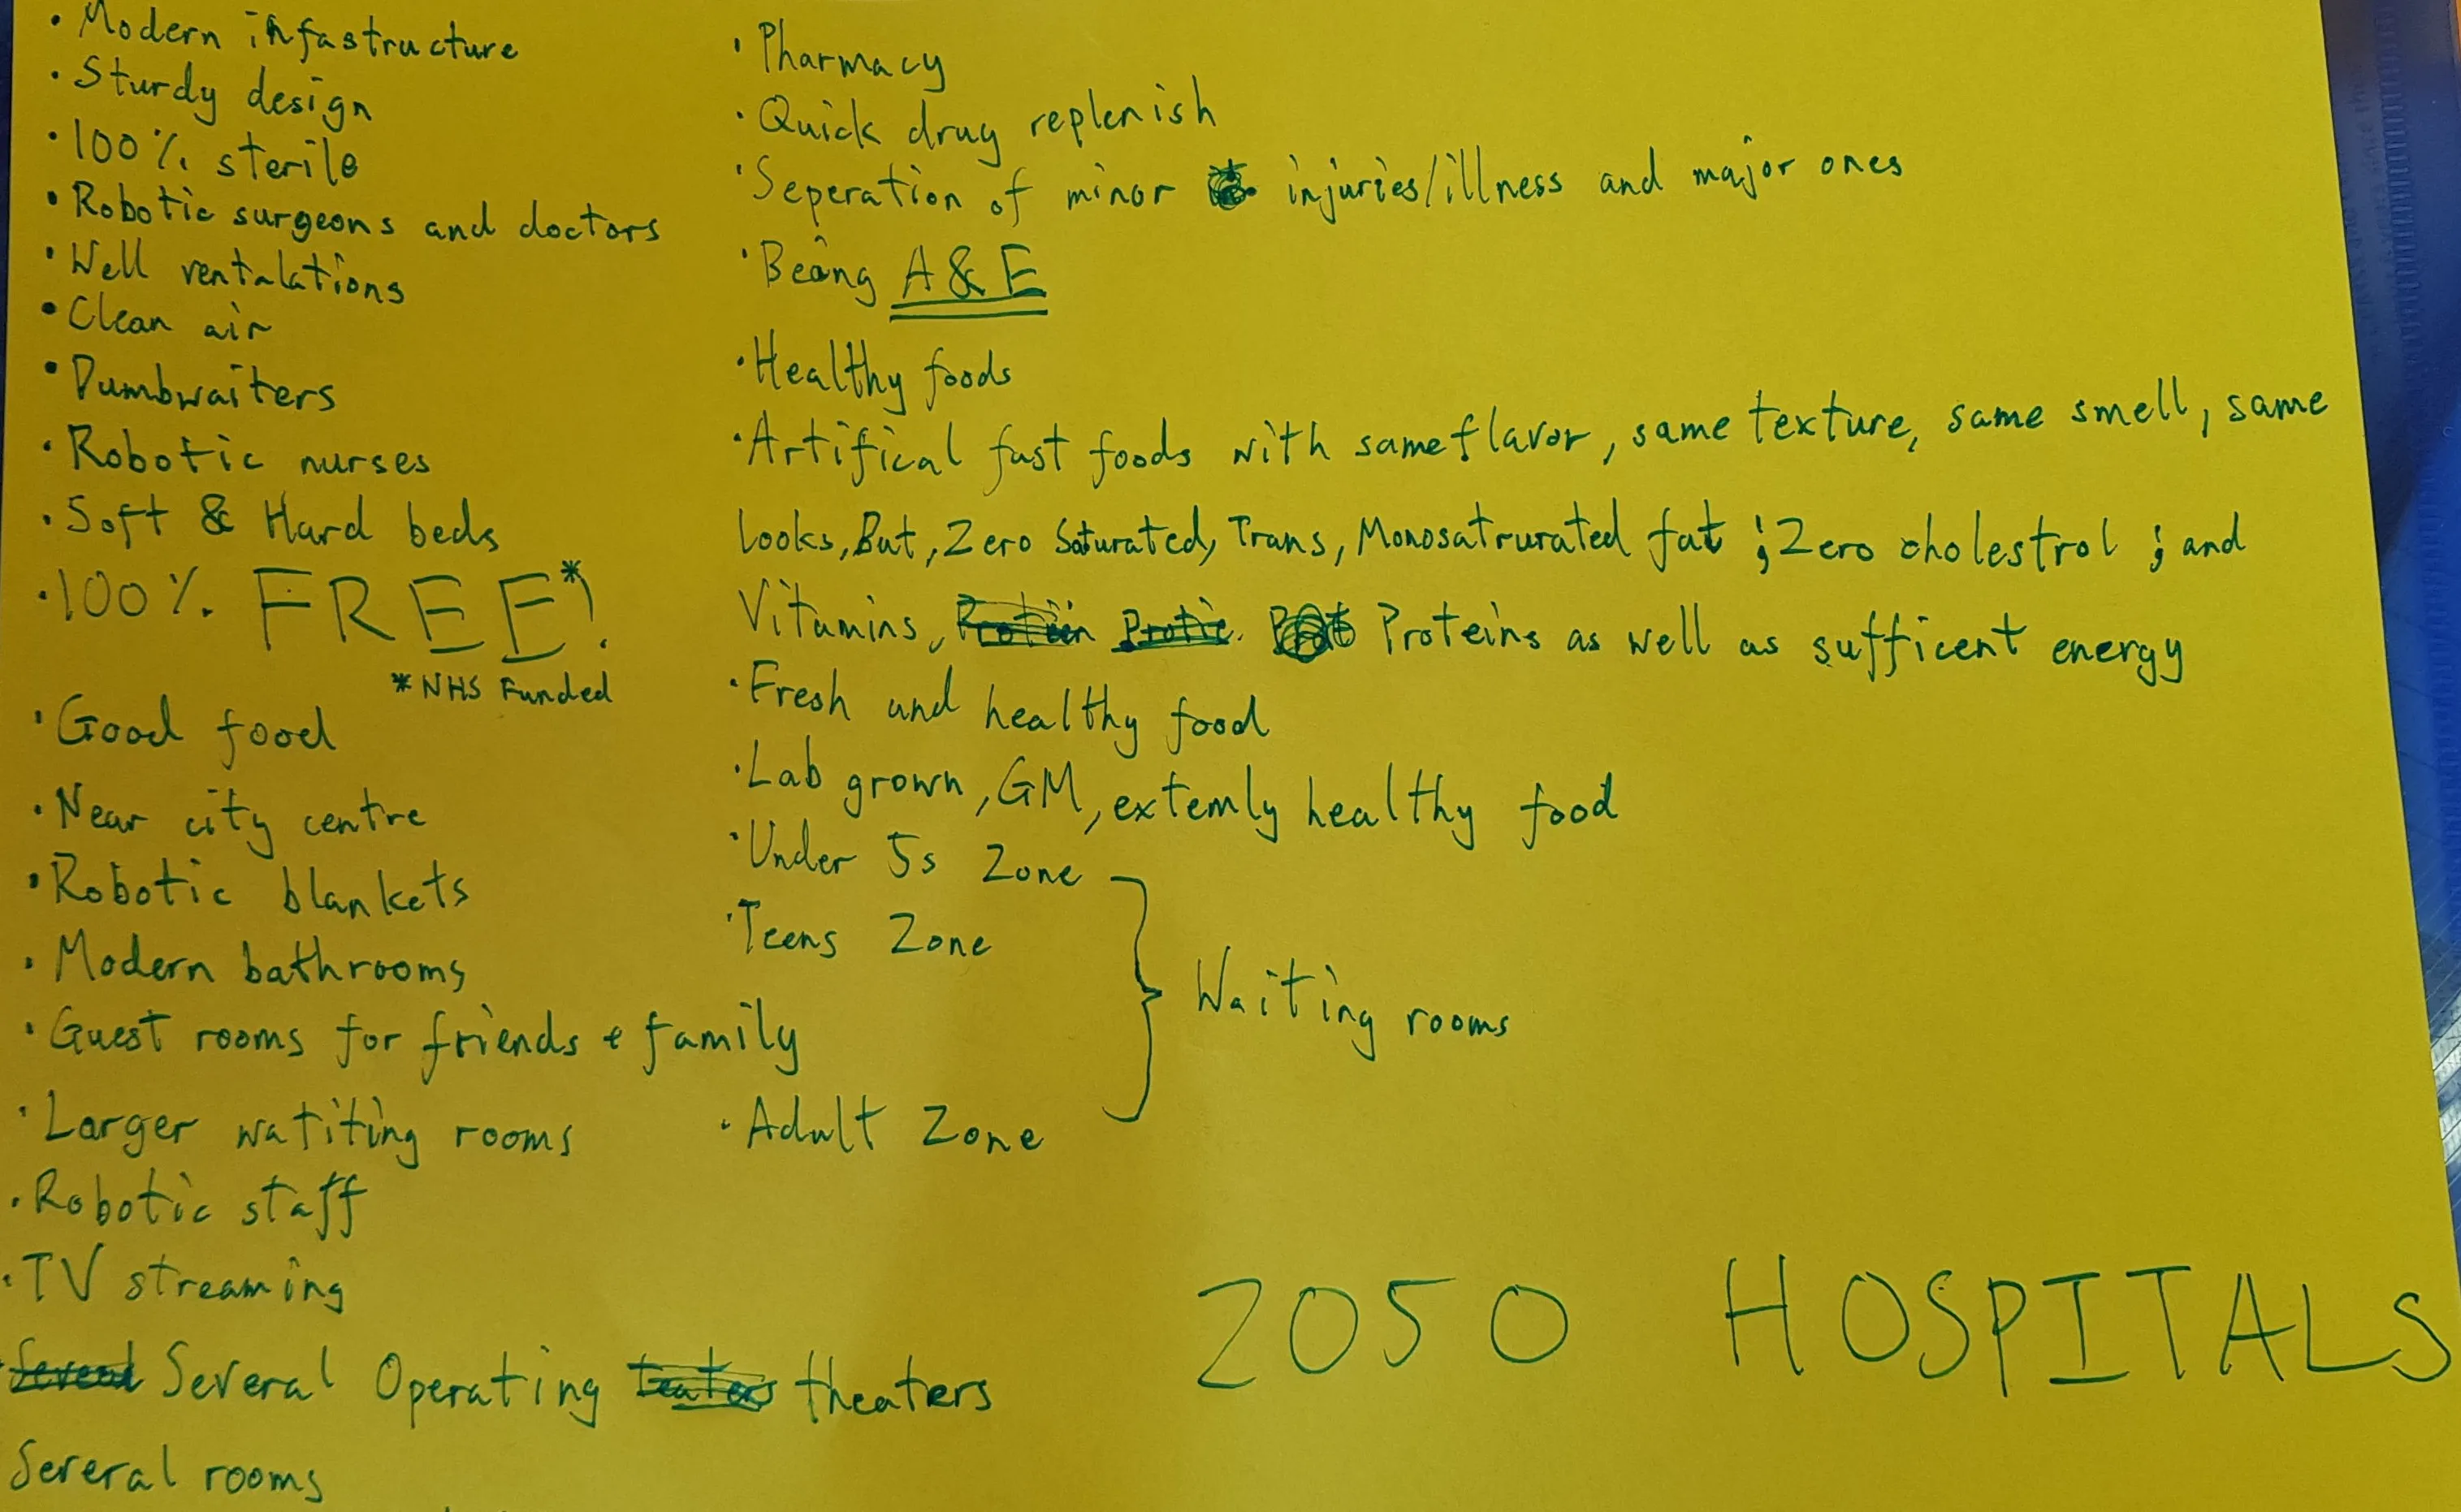 • Modern infastructure
• Sturdy design
• 100% sterile
• Robotic surgeons and doctors
• Well ventalations
• Clean air
• Dumbwaiters
• Robotic nurses
• Soft & Hard beds
• 100% FREE*!
*NHS Funded
• Good food
• Near city centre
• Robotic blankets
• Modern bathrooms
• Guest rooms for friends + family
• Larger watiting rooms
• Robotic staff
• TV streaming
• Several Operating theaters
Several rooms
• Pharmacy
• Quick drug replenish
• Seperation of minor injuries/illness and major ones
• Being A & E
• Healthy foods
• Artifical fast foods with same flavor, same texture, same smell, same
looks, But, Zero Saturated, Trans, Monosatrurated fat ; Zero cholestrol ; and
Vitamins, Proteins as well as sufficent energy
• Fresh and healthy food
• Lab grown, GM, extemly healthy food
• Under 5s Zone
• Teens Zone
• Adult Zone
Waiting rooms
2050 HOSPITALS